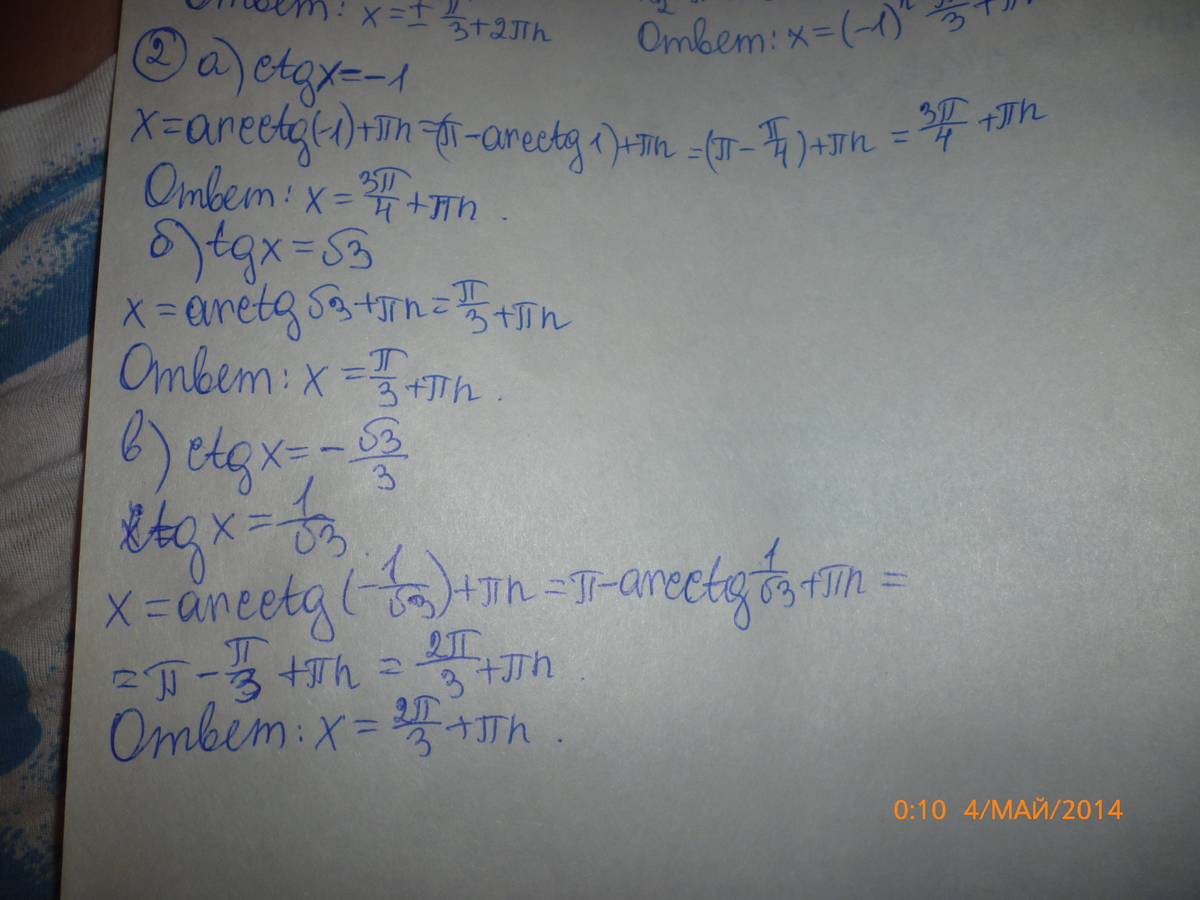 Ответ: x = ± π/3 + 2πn
Ответ: x = (-1)ⁿ π/3 + πn
② а) ctgx = -1
x = arcctg(-1) + πn = (π - arcctg 1) + πn = (π - π/4) + πn = 3π/4 + πn
Ответ: x = 3π/4 + πn.
б) tgx = √3
x = arctg √3 + πn = π/3 + πn
Ответ: x = π/3 + πn.
в) ctgx = -√3/3
ctgx = 1/√3
x = arcctg (-1/√3) + πn = π - arcctg 1/√3 + πn =
= π - π/3 + πn = 2π/3 + πn.
Ответ: x = 2π/3 + πn.
0:10 4/МАЙ/2014